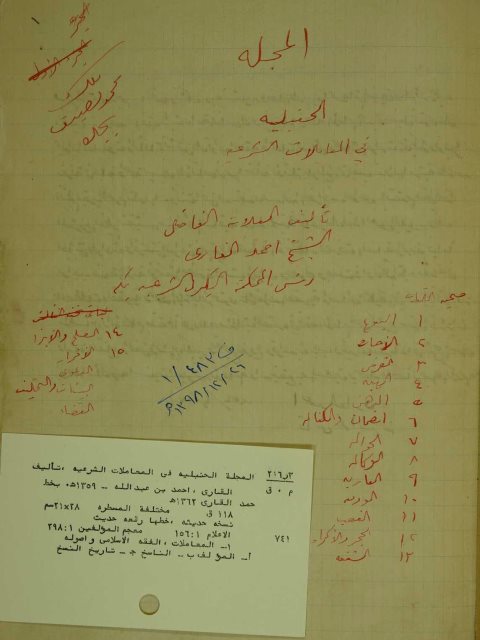 ١
الجزء
ملك
المجله
الحنبليه
في المعاملات الشرعيه
تأليف العلامة القاضي
الشيخ احمد القاري
رئيس المحكمه الكبرى الشرعيه بمكه
صحيفة
١ البيوع
٢ الاجاره
٣ القرض
٤ الهبه
٥ الرهن
٦ الضمان والكفاله
٧ الحواله
٨ الوكاله
٩ العاريه
١٠ الوديعه
١١ الغصب
١٢ الحجر والاكراه
١٣ الشفعه
١٤ الصلح والابرا
١٥ الاقرار
الدعوى
البينات والتحليف
القضاء
ف ٤٨٣/١
١٣٩٨/١٢/٢٦هـ
٢١٦٫٣ المجلة الحنبليه فى المعاملات الشرعيه ،تأليف
م ٠ ق القارى ، احمد بن عبدالله - ١٣٥٩ه٠ بخط
حمد القارى ١٣٦٢ه
١١٨ ق مختلفة المسطره ٢٨×٢١سم
نسخه حديثه ،خطها رقعه حديث
٧٤١ الاعلام ١:١٥٦ معجم المؤلفين ١:٢٩٨
١- المعاملات، الفقه الاسلامى واصوله
أ- المؤلف ب- الناسخ ج- تاريخ النسخ